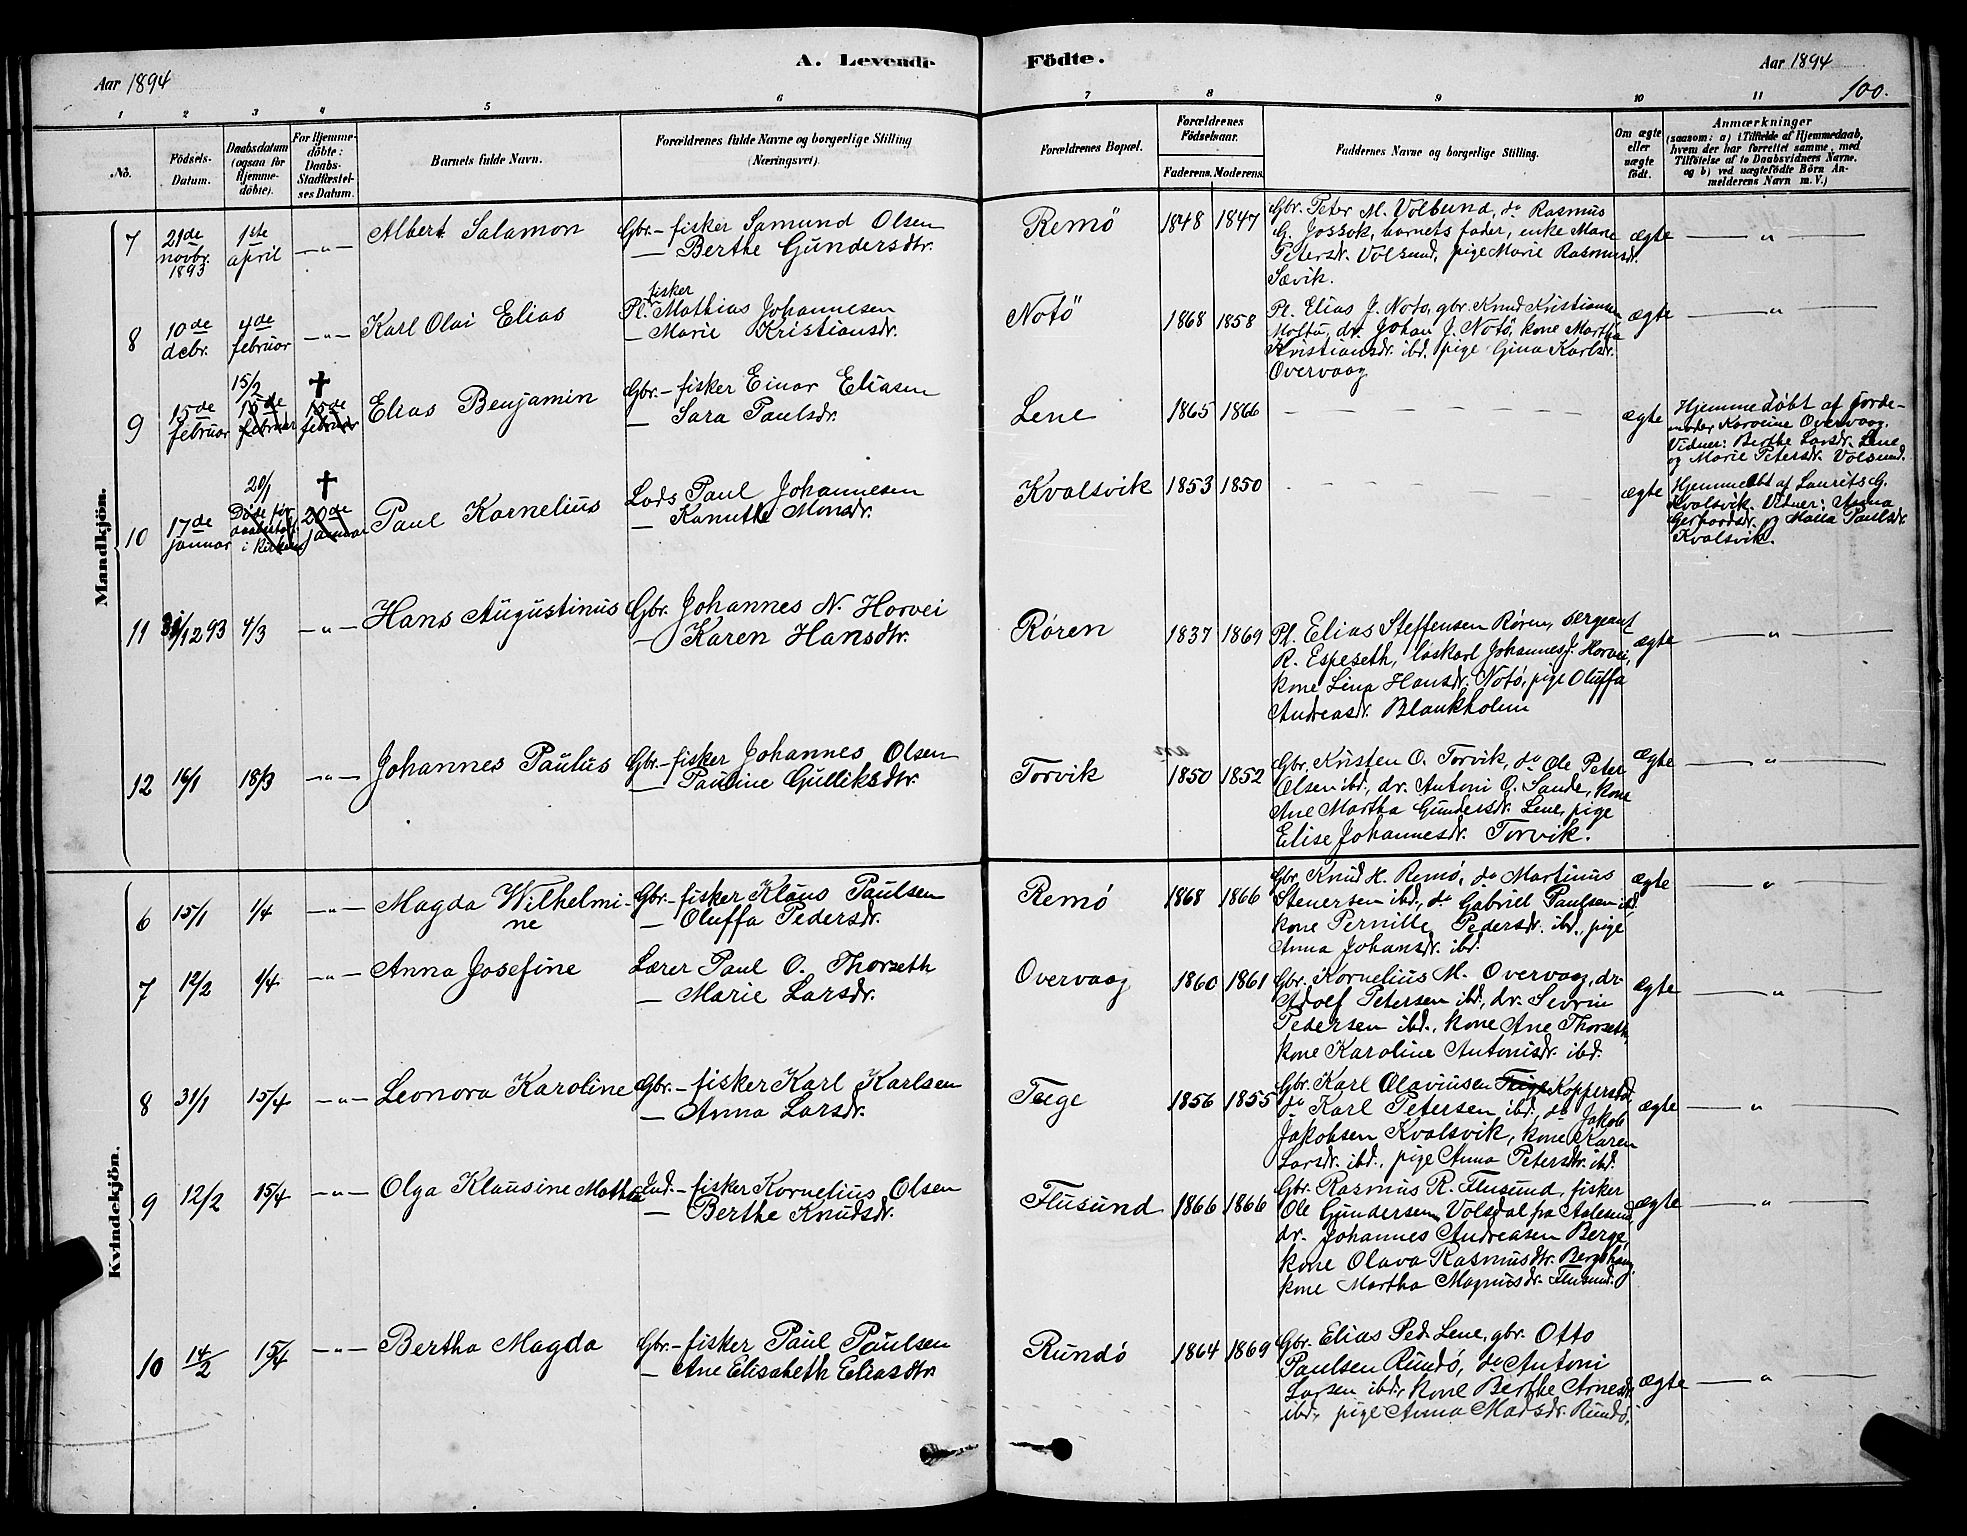 Aar 1894
A. Levende Födte.
Aar 1894
100.
1 2 3 4 5 6 7 8 9 10 11
No.
Födsels-Datum.
Daabsdatum (ogsaa for Hjemme-döbte).
For Hjemme-döbte: Daabs-Stadfæstel-ses Datum.
Barnets fulde Navn.
Forældrenes fulde Navne og borgerlige Stilling (Næringsvei).
Forældrenes Bopæl.
Forældrenes Födselsaar.
Faderens. Moderens.
Faddernes Navne og borgerlige Stilling.
Om ægte eller uægte födt.
Anmærkninger
(saasom: a) i Tilfælde af Hjemmedaab, hvem der har forrettet samme, med Tilföielse af to Daabsvidners Navne. og b) ved uægtefödte Börn An-melderens Navn m. V.)
Mandkjön.
7 21de novbr. 1893 1ste april —"— Albert Salamon
Gbr.-fisker Samund Olsen
— Berthe Gundersdtr.
Remö 1848 1847
Gbr. Peter M. Volsund, do Rasmus
G. Jossok, barnets fader, enke Marie
Petersdr. Volsund, pige Marie Rasmusdr.
Sævik.
ægte —"—
8 10de debr. 4de februar —"— Karl Olai Elias
fisker
Pl. Mathias Johannesen
— Marie Kristiansdr.
Notö 1868 1858
Pl. Elias J. Notø, gbr. Knud Kristiansen
Moltu, dr. Johan J. Notö, kone Martha
Kristiansdr. ibd. pige Gina Karlsdr.
Overvaag
ægte —"—
9 15de februar 15/2 15de februar † 15de februar Elias Benjamin
Gbr.-fisker Einar Eliasen
— Sara Paulsdr.
Lene 1865 1866
ægte
Hjemmedöbt af Jorde-
moder Karoline Overvaag.
Vidner: Berthe Larsdr. Lene
og Marie Petersdr. Volsund.
10 17de januar 20/1 Döde før
i kirken † 20de januar Paul Kornelius
Lods Paul Johannesen
— Kanutke Monsdr.
Kvalsvik 1853 1850
ægte
Hjemmedøbt af Laurits G.
Kvalsvik. Vidner: Anna
Gerhardsdr. og Malla Paulsdr.
Kvalsvik.
11 31/12 93 4/3 —"— Hans Augustinus
Gbr. Johannes N. Horvei
— Karen Hansdtr.
Røren 1837 1869
Pl. Elias Steffensen Røren, sergeant
R. Espeseth, løskarl Johannes J. Horvei,
kone Lina Hansdr. Notö, pige Oluffa
Andreasdr. Blankholm
ægte —"—
12 16/1 18/3 —"— Johannes Paulus
Gbr.-fisker Johannes Olsen
— Pauline Gulliksdtr.
Torvik 1850 1852
Gbr. Kristen O. Torvik, do Ole Peter
Olsen ibd., dr. Antoni O. Sande, kone
Ane Martha Gundersdr. Lene, pige
Elise Johannesdr. Torvik.
ægte —"—
Kvindekjön.
6 15/1 1/4 —"— Magda Wilhelmi-
ne
Gbr.-fisker Klaus Paulsen
— Oluffa Pedersdr.
Remø 1868 1866
Gbr. Knud H. Remø, do Martinus
Stenersen ibd., do Gabriel Paulsen ibd.
kone Pernille Pedersdr. ibd., pige
Anna Johansdr. ibd.
ægte —"—
7 12/2 1/4 —"— Anna Josefine
Lærer Paul O. Thorseth
— Marie Larsdr.
Overvaag 1860 1861
Gbr. Kornelius M. Overvaag, dr.
Adolf Petersen ibd., dr. Sevrin
Pedersen ibd., kone Ane Thorseth,
kone Karoline Antonisdr. ibd.
ægte —"—
8 31/1 15/4 —"— Leonora Karoline
Gbr.-fisker Karl Karlsen
— Anna Larsdr.
Teige 1856 1855
Gbr. Karl Olaviusen Teige Koppersta
do Karl Petersen ibd., do Jakob
Jakobsen Kvalsvik, kone Karen
Larsdr. ibd., pige Anna Petersdtr. ibd.
ægte —"—
9 12/2 15/4 —"— Olga Klausine Mathea
Ind.-fisker Kornelius Olsen
— Berthe Knudsdr.
Flusund 1866 1866
Gbr. Rasmus R. Flusund, fisker
Ole Gundersen Volsdal fra Aalesund,
dr. Johannes Andreasen Berge,
kone Olava Rasmusdtr. Bergshaug
kone Martha Magnusdr. Flusund.
ægte —"—
10 14/2 15/4 —"— Bertha Magda
Gbr.-fisker Paul Paulsen
— Ane Elisabeth Eliasdtr.
Rundö 1864 1869
Gbr. Elias Ped. Lene, gbr. Otto
Paulsen Rundö, do Antoni
Larsen ibd., kone Berthe Arnesdr.
ibd., pige Anna Madsdr. Rundö.
ægte —"—